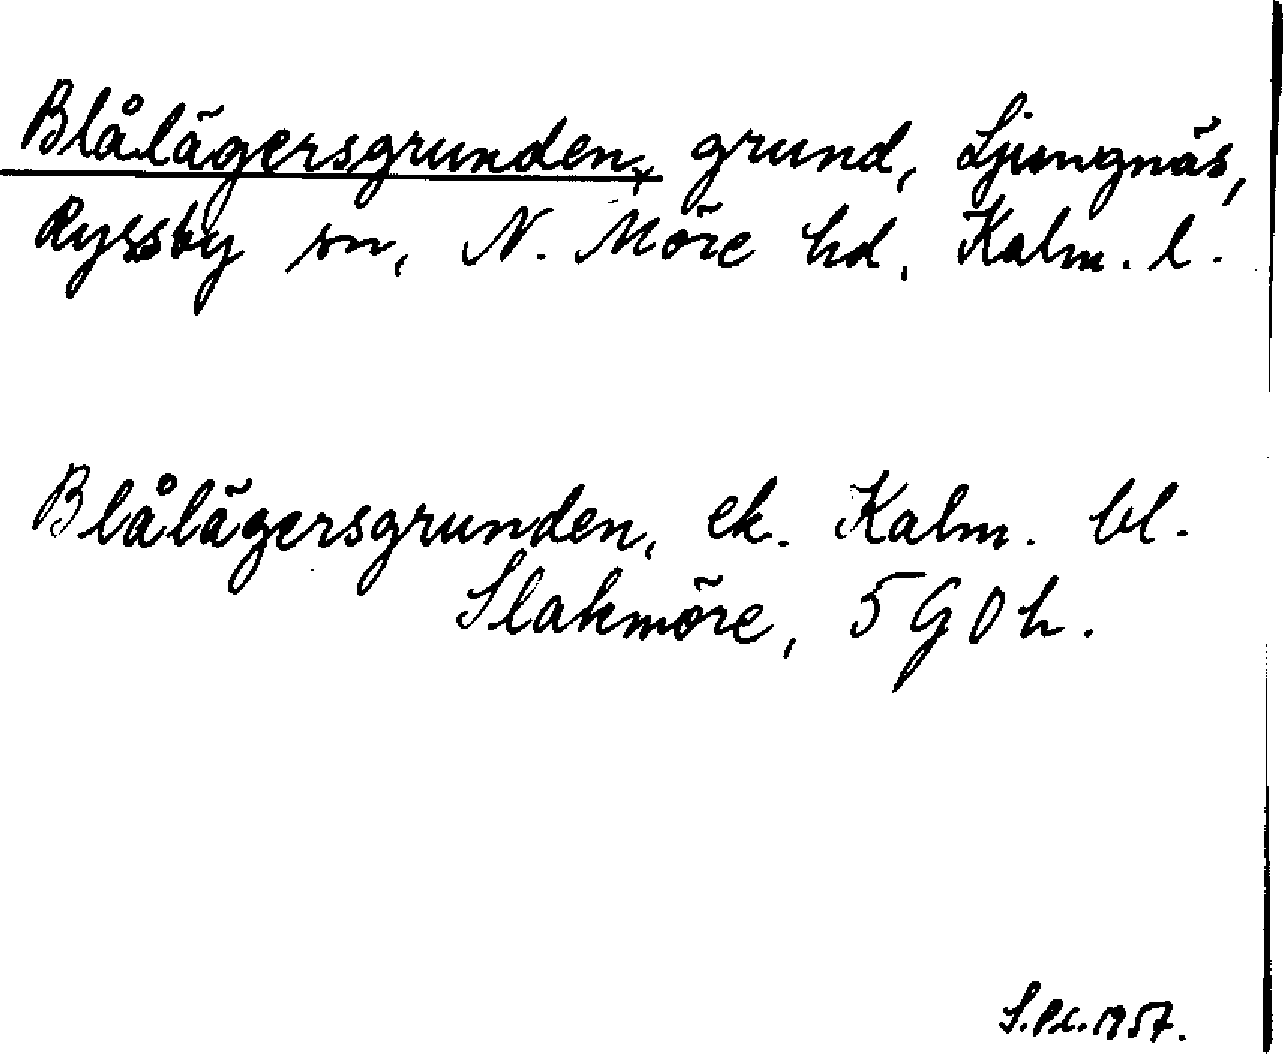 Blålägersgrunden, grund, Ljungnäs,
Ryssby sn, N. Möre hd, Kalm. l.
Blålägersgrunden, ek. Kalm. bl.
Slakmöre, 5 G 0 h.
1957.